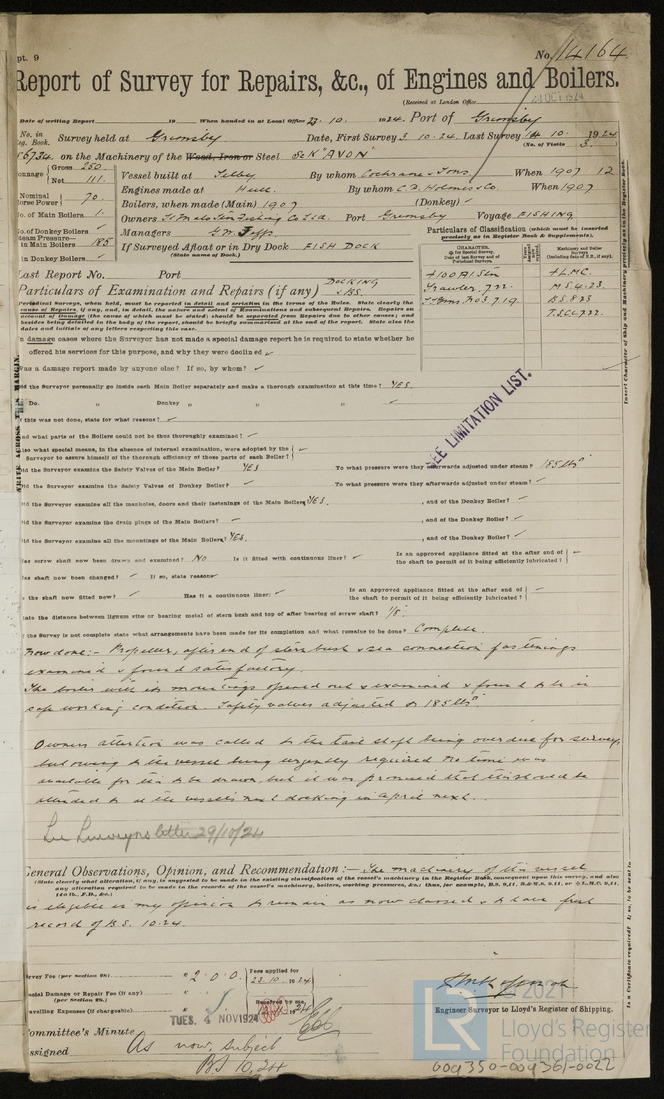 pt. 9
No. 14164
Report of Survey for Repairs, &c., of Engines and Boilers.
(Received at London Office
Date of writing Report 19 When handed in at Local Office 23. 10. 1924 Port of Grimsby
No. in Reg. Book. Survey held at Grimsby Date, First Survey 3. 10. 24. Last Survey 14 10. 1924
(No. of Visits 3.
on the Machinery of the Wood, Iron or Steel ScK "AVON"
Gross 250.
Net 111.
Vessel built at Selby By whom Cochrane & Sons When 1907 12
Nominal Horse Power 70.
Engines made at Hull. By whom C.D. Holmes & Co. When 1907
No. of Main Boilers 1. Boilers, when made (Main) 1907 (Donkey) ✓
No. of Donkey Boilers ✓ Owners Port Grimsby Voyage FISHING
Steam Pressure in Main Boilers 185 Managers
in Donkey Boilers ✓ If Surveyed Afloat or in Dry Dock FISH DOCK
(State name of Dock.)
Particulars of Classification (which must be inserted precisely as in Register Book & Supplements).
Last Report No. Port
Particulars of Examination and Repairs (if any) DOCKING & BS.
+100A1. Stm Trawler. 7.22. +LMC.
M S 4.23.
B S 8 23
Periodical Surveys, when held, must be reported in detail and seriatim in the terms of the Rules. State clearly the
cause of Repairs, if any, and, in detail, the nature and extent of Examinations and subsequent Repairs. Repairs on
account of Damage (the cause of which must be stated) should be separated from Repairs due to other causes; and
besides being detailed in the body of the report, should be briefly summarised at the end of the report. State also the
dates and initials of any letters respecting this case.
In damage cases where the Surveyor has not made a special damage report he is required to state whether he
offered his services for this purpose, and why they were declined ✓
Was a damage report made by anyone else? If so, by whom? ✓
Did the Surveyor personally go inside each Main Boiler separately and make a thorough examination at this time? YES.
Do. " Donkey " " ✓
SEE LIMITATION LIST.
If this was not done, state for what reasons? ✓
And what parts of the Boilers could not be thus thoroughly examined? ✓
Also what special means, in the absence of internal examination, were adopted by the
Surveyor to assure himself of the thorough efficiency of those parts of each Boiler? ✓
Did the Surveyor examine the Safety Valves of the Main Boiler? YES To what pressure were they afterwards adjusted under steam? 185 lbs
Did the Surveyor examine the Safety Valves of Donkey Boiler? ✓ To what pressure were they afterwards adjusted under steam? ✓
Did the Surveyor examine all the manholes, doors and their fastenings of the Main Boilers YES. , and of the Donkey Boiler? ✓
Did the Surveyor examine the drain plugs of the Main Boilers? ✓ , and of the Donkey Boiler? ✓
Did the Surveyor examine all the mountings of the Main Boilers? YES. , and of the Donkey Boiler? ✓
Has screw shaft now been drawn and examined? NO Is it fitted with continuous liner? ✓ Is an approved appliance fitted at the after end of the shaft to permit of it being efficiently lubricated? ✓
Has shaft now been changed? ✓ If so, state reasons ✓
Is the shaft now fitted new? ✓ Has it a continuous liner? ✓ Is an approved appliance fitted at the after end of the shaft to permit of it being efficiently lubricated? ✓
State the distance between lignum vitæ or bearing metal of stern bush and top of after bearing of screw shaft? 1/8"
If the Survey is not complete state what arrangements have been made for its completion and what remains to be done? Complete.
Now done:- Propeller, after end of stern bush & sea connection fastenings
examined & found satisfactory.
The boiler with its mountings opened out & examined & found to be in
safe working condition. Safety valves adjusted to 185 lbs
Owners attention was called to the tail shaft being overdue for survey,
but owing to the vessel being urgently required no time was
available for this to be drawn, but it was promised that this should be
attended to at the vessel's next docking in April next.
letter 29/10/24
General Observations, Opinion, and Recommendation:— The machinery of this vessel
(State clearly what alteration, if any, is suggested to be made in the existing classification of the vessel's machinery in the Register Book, consequent upon this survey, and also
any alteration required to be made in the records of the vessel's machinery, boilers, working pressures, &c.; thus, for example, B.S. 9,11, B.&M.S. 9,11, or +L.M.C. 9,11,
140 lb., F.D., &c.)
is eligible in my opinion to remain as now classed & to have fresh
record of B.S. 10.24.
Survey Fee (per Section 28) " 2 . 0 . 0 Fees applied for 23.10 1924
Special Damage or Repair Fee (if any) (per Section 28.)
Received by me,
Travelling Expenses (if chargeable)
Engineer Surveyor to Lloyd's Register of Shipping.
Committee's Minute TUES. 4 NOV 1924
Assigned As now, subject
BS 10.24
© 2021
Lloyd's Register
Foundation
009350-009361-0022